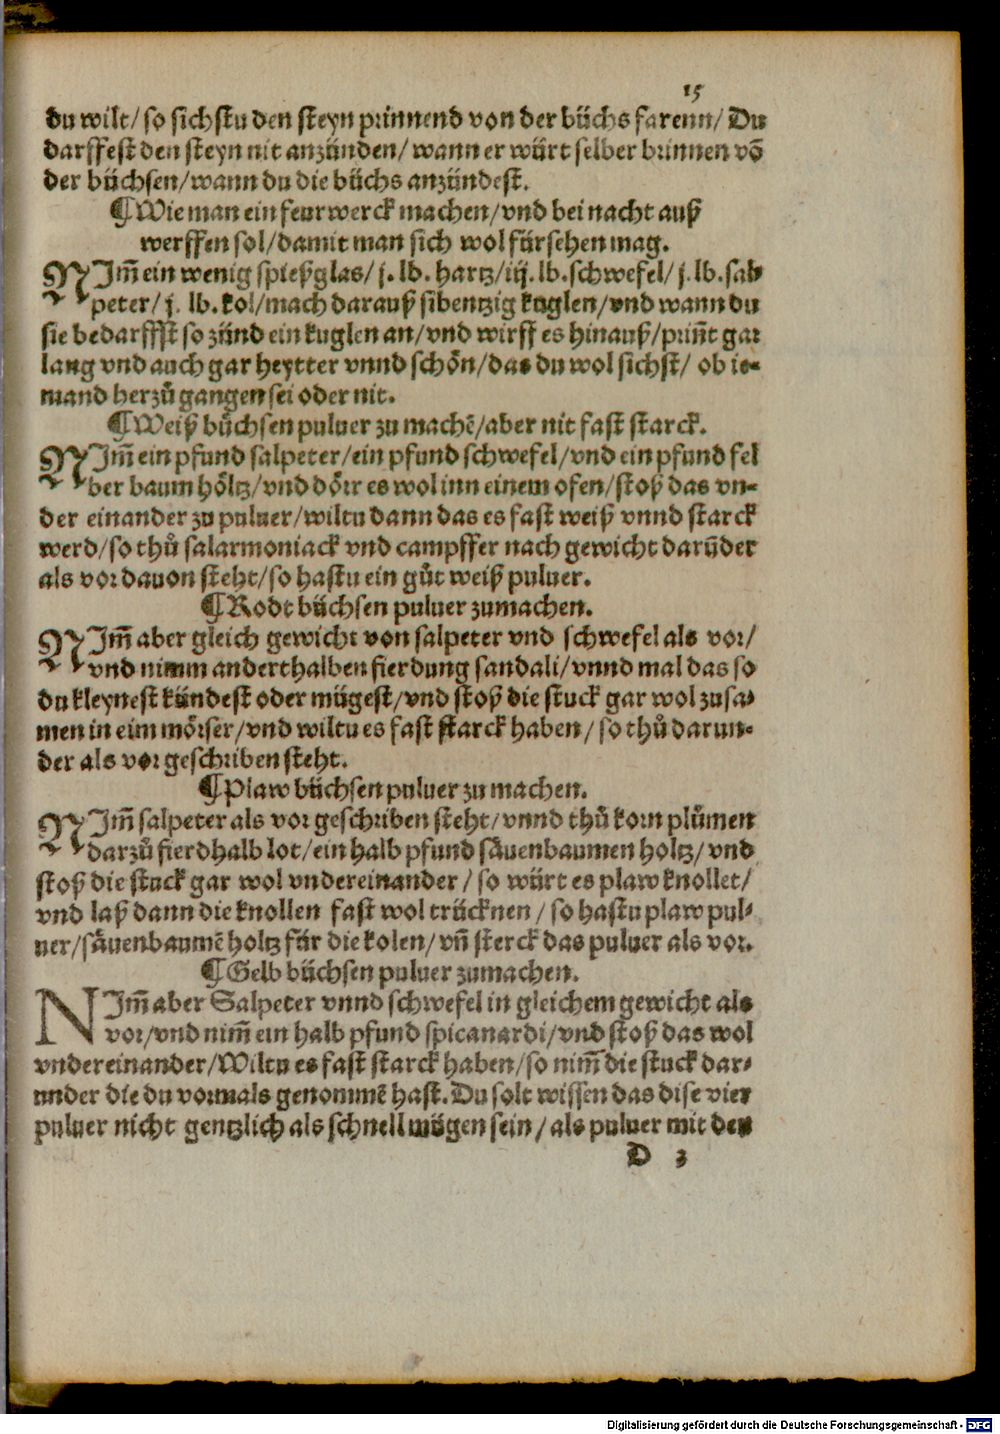 15
du wilt/ so sichstu den steyn prinnend von der büchs farenn/ Du
darffest den steyn nit anzünden/ wann er würt selber brinnen võ
der büchsen/ wann du die büchs anzündest.
¶ Wie man ein feurwerck machen/ vnd bei nacht auß
werffen sol/ damit man sich wol fürsehen mag.
NIm̃ ein wenig spießglas/ j. lb. hartz/ iij. lb. schwefel/ j. lb. sal⸗
peter/ j. lb. kol/ mach darauß sibentzig kuglen/ vnd wann du
sie bedarffst so zünd ein kuglen an/ vnd wirff es hinauß/ prin̄t gar
lang vnd auch gar heytter vnnd schön/ das du wol sichst/ ob ie⸗
mand herzů gangen sei oder nit.
¶ Weiß büchsen puluer zu machẽ/ aber nit fast starck.
NIm̃ ein pfund salpeter/ ein pfund schwefel/ vnd ein pfund fel
ber baum höltz/ vnd dörr es wol inn einem ofen/ stoß das vn⸗
der einander zu puluer/ wiltu dann das es fast weiß vnnd starck
werd/ so thů salarmoniack vnd campffer nach gewicht darũder
als vor dauon steht/ so hastu ein gůt weiß puluer.
¶ Rodt büchsen puluer zumachen.
NIm̃ aber gleich gewicht von salpeter vnd schwefel als vor/
vnd nimm anderthalben fierdung sandali/ vnnd mal das so
du kleynest kündest oder mügest/ vnd stoß die stuck gar wol zusa⸗
men in eim mörser/ vnd wiltu es fast starck haben/ so thů darun⸗
der als vor geschriben steht.
¶ Plaw büchsen puluer zu machen.
NIm̃ salpeter als vor geschriben steht/ vnnd thů korn plůmen
darzů fierdhalb lot/ ein halb pfund säuenbaumen holtz/ vnd
stoß die stuck gar wol vndereinander/ so würt es plaw knollet/
vnd laß dann die knollen fast wol trücknen/ so hastu plaw pul⸗
uer/ säuenbaumẽ holtz für die kolen/ vñ sterck das puluer als vor.
¶ Gelb büchsen puluer zumachen.
NIm̃ aber Salpeter vnnd schwefel in gleichem gewicht als
vor/ vnd nim̃ ein halb pfund spicanardi/ vnd stoß das wol
vndereinander/ Wiltu es fast starck haben/ so nim̃ die stuck dar⸗
under die du vormals genommẽ hast. Du solt wissen das dise vier
puluer nicht gentzlich als schnell mügen sein/ als puluer mit den
D 3
Digitalisierung gefördert durch die Deutsche Forschungsgemeinschaft - DFG